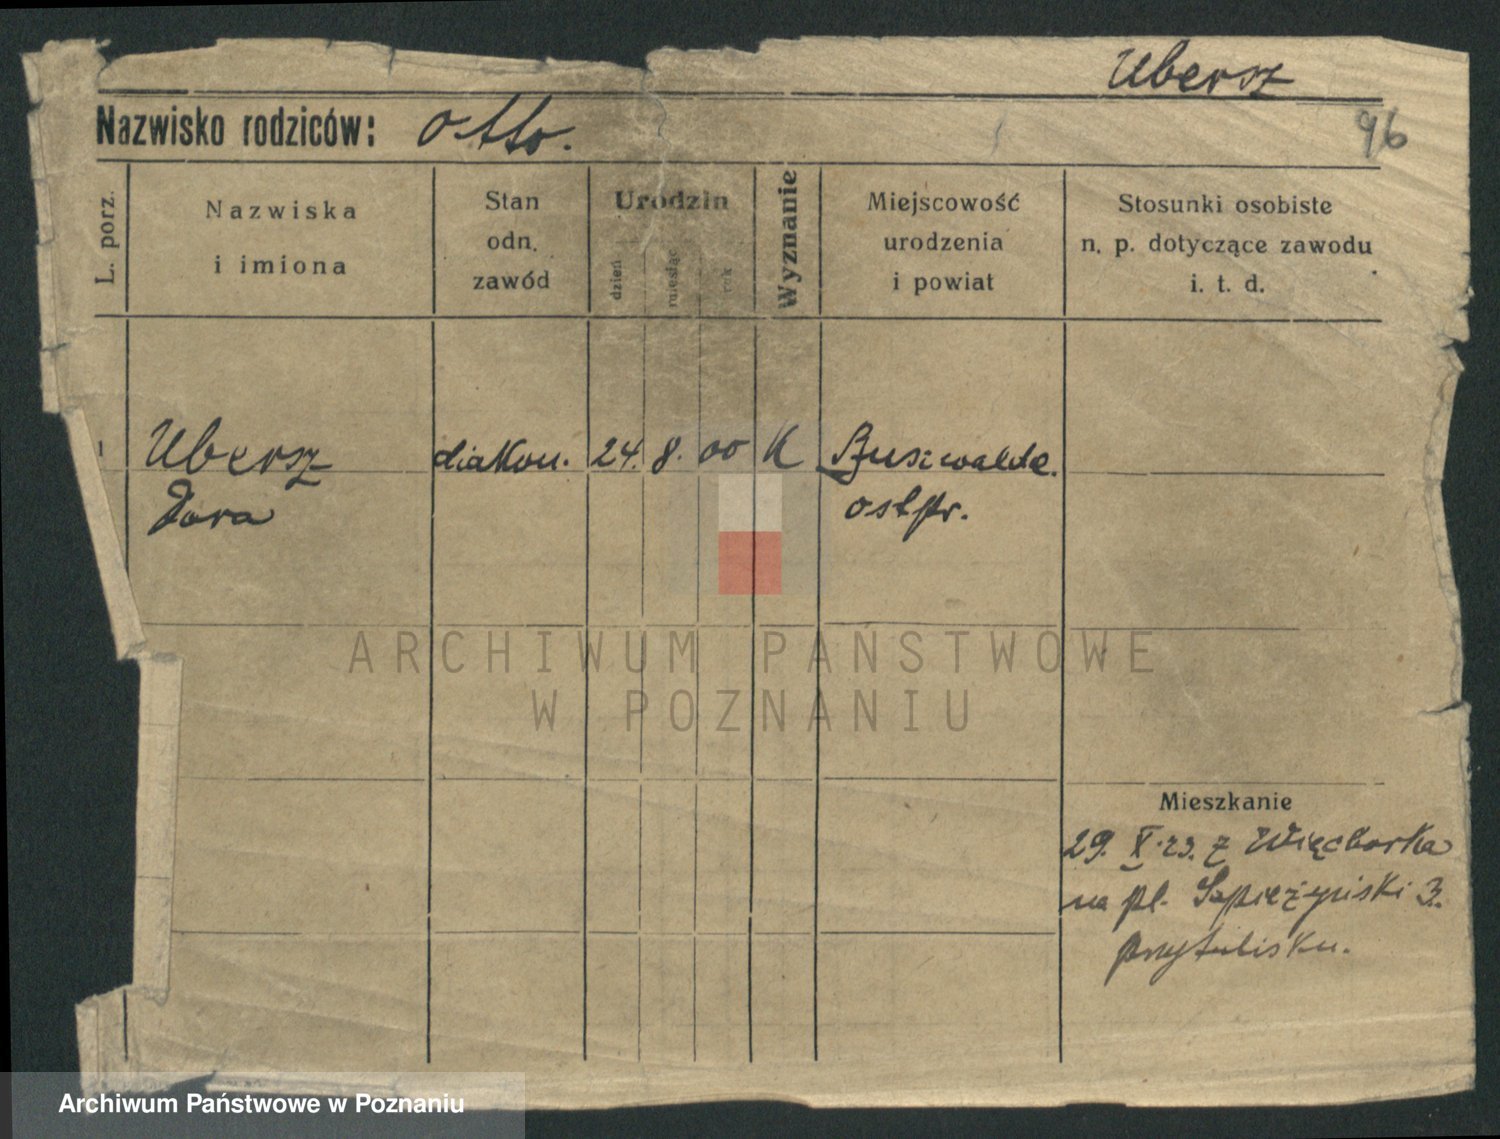 Ubersz
Nazwisko rodziców: Otto.
96
L. porz.
Nazwiska
i imiona
Stan
odn.
zawód
Urodzin
dzień
miesiąc
rok
Wyznanie
Miejscowość
urodzenia
i powiat
Stosunki osobiste
n. p. dotyczące zawodu
i. t. d.
1 Ubersz diakon. 24. 8. 00 K Busiwalde.
Dora ostpr.
ARCHIWUM PAŃSTWOWE
W POZNANIU
Mieszkanie
29. X. 23. z Więcborka
na pl. Sapieżyński 3.
przytulisku.
Archiwum Państwowe w Poznaniu